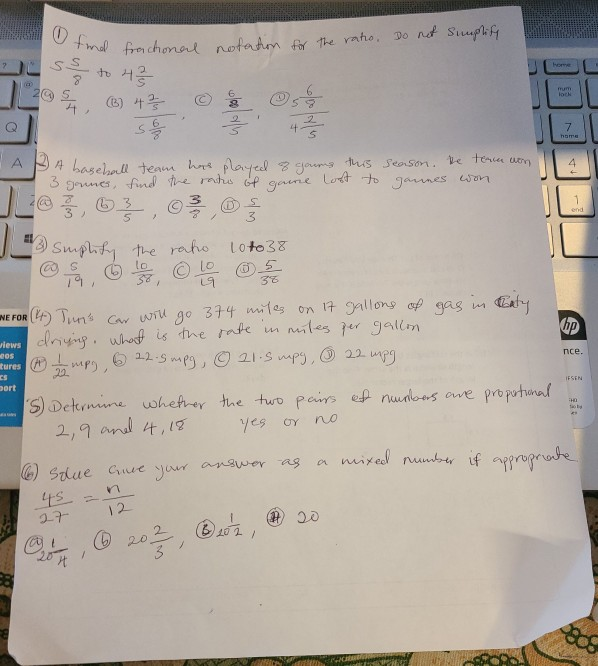 ① Find fractional notation for the ratio. Do not simplify
5 5/8 to 4 2/5
ⓐ 5/4, Ⓑ 4 2/5 / 5 6/8, Ⓒ 6/8 / 2/5, Ⓓ 5 6/8 / 4 2/5
② A baseball team has played 8 games this season. The team won
3 games. find the ratio of game lost to games won
ⓐ 8/3, ⓑ 3/5, Ⓒ 3/8, Ⓓ 5/3
③ Simplify the ratio 10 to 38
ⓐ 5/19, ⓑ 10/38, Ⓒ 10/19, Ⓓ 5/38
(4) Jim's car will go 374 miles on 17 gallons of gas in city
driving. what is the rate in miles per gallon
Ⓐ 1/22 mpg, ⓑ 22.5 mpg, Ⓒ 21.5 mpg, Ⓓ 22 mpg
5) Determine whether the two pairs of numbers are propotional
2, 9 and 4, 18 yes or no
⑥ Solve Give your answer as a mixed number if appropriate
45/27 = n/12
ⓐ 20 1/4, ⓑ 20 2/3, 20 1/2, 20
home
num
lock
7
home
4
1
end
Q
A
hp
NE FOR
views
eos
tures
cs
port
nce.